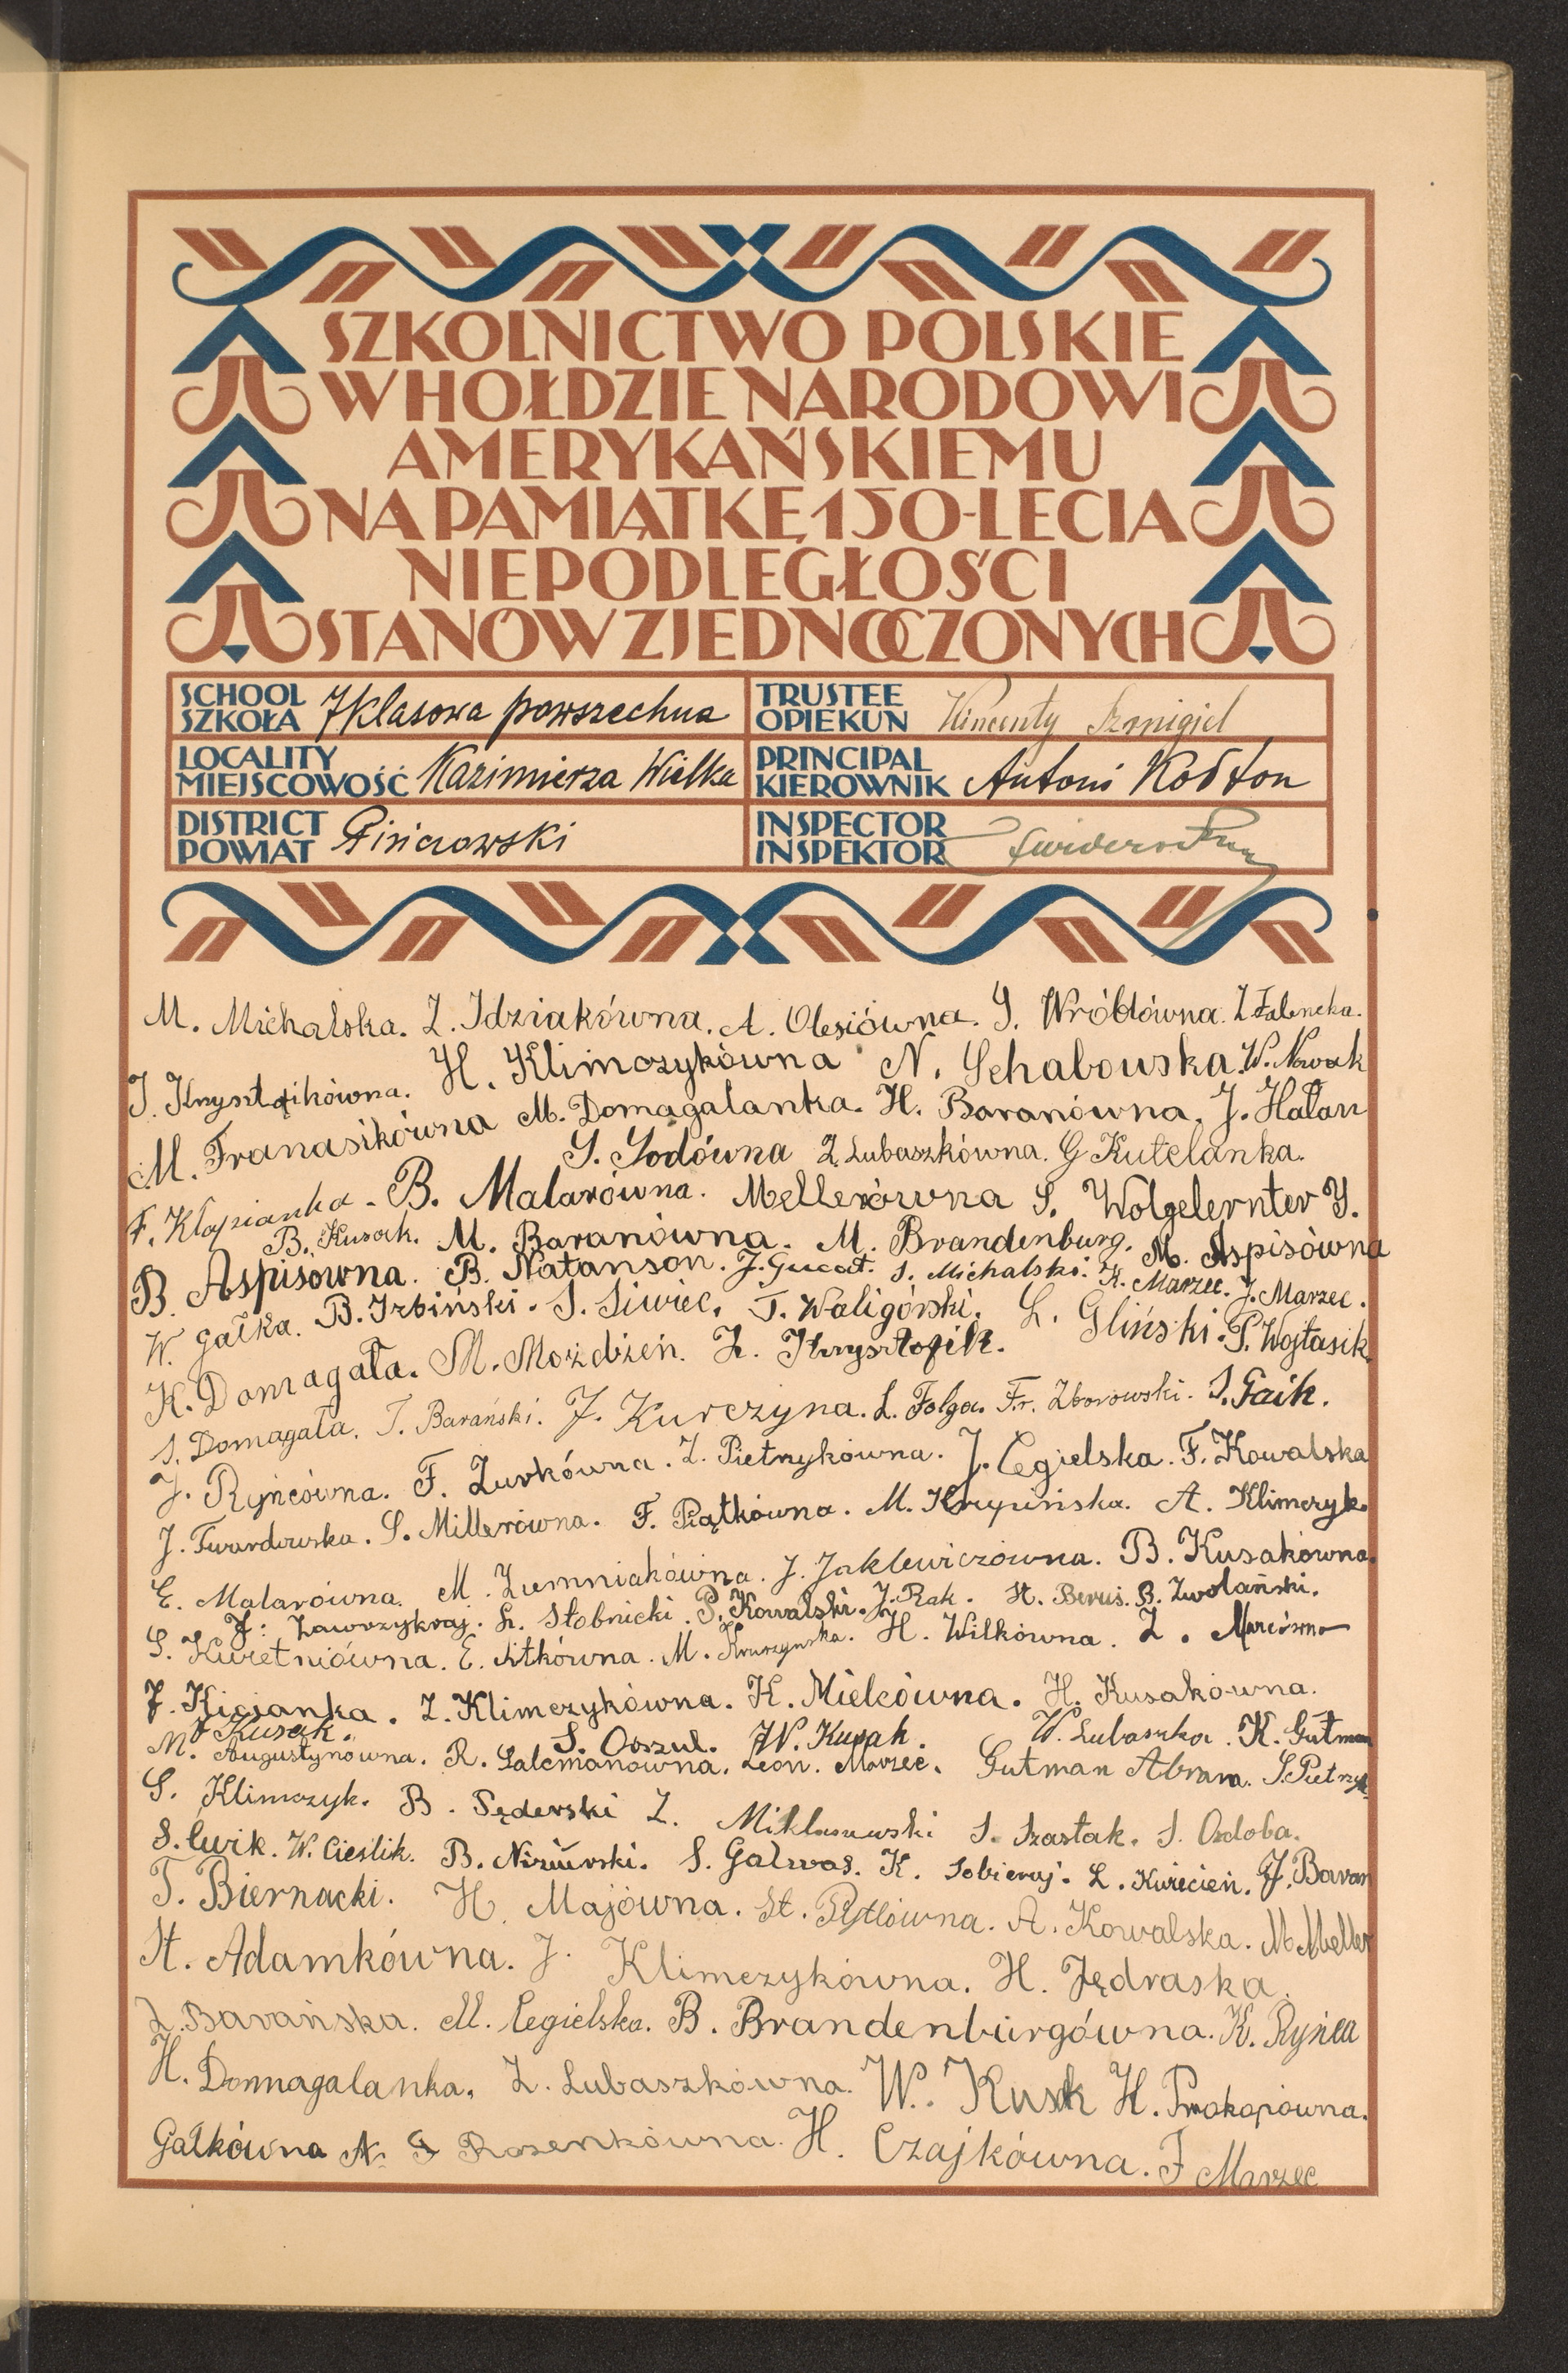 SZKOLNICTWO POLSKIE
W HOŁDZIE NARODOWI
AMERYKAŃSKIEMU
NA PAMIĄTKĘ 150-LECIA
NIEPODLEGŁOŚCI
STANÓW ZJEDNOCZONYCH
SCHOOL SZKOŁA 7klasowa powszechna
TRUSTEE OPIEKUN Wincenty Szmigiel
LOCALITY MIEJSCOWOŚĆ Kazimierza Wielka
PRINCIPAL KIEROWNIK Antoni Kołton
DISTRICT POWIAT Pińczowski
INSPECTOR INSPEKTOR
M. Michalska. Z. Idziakówna. A. Olesiówna. J. Wróblówna. Z. Falencka.
J. Krysztofikówna. H. Klimczykówna N. Schabowska. W. Nowak
M. Franasikówna M. Domagalanka. H. Baranówna. J. Hałan
S. Sodówna Z. Lubaszkówna. G Kutelanka.
F. Kłapianka. B. Malarówna. Mellerówna S. Wolgelernter Y.
B. Kusak. M. Baranówna. M. Brandenburg. M. Aspisówna
B. Aspisówna. B. Natanson. J. S. Michalski. K. Marzec. J. Marzec.
W. Gałka. B. Irbiński. S. Siwiec. T. Waligórski. L. Gliński. P. Wojtasik.
K. Domagała. M. Możdżeń. Z. Krysztofik.
S. Domagała. T. Barański. J. Kurczyna. L. Folga. Fr. Zborowski. S. Gaik.
J. Ryńcówna. F. Żurkówna. Z. Pietrzykówna. J. Cegielska. F. Kowalska
J. Twardowska. S. Millerówna. F. Piątkówna. M. Krupińska. A. Klimczyk.
E. Malarówna. M. Ziemniakówna. J. Jaklewiczówna. B. Kusakówna.
J. Zaworzykraj. L. Słobnicki. P. Kowalski. J. Rak. St. Beruś. B. Zwolański.
S. Kwietniówna. E. Kitkówna. M. Kruszyńska. H. Wilkówna. Z. Marcówna
J. Kicianka. Z. Klimczykówna. K. Mielcówna. H. Kusakówna.
J Kusak. S. Oszul. W. Kusak. W. Lubaszka. K. Gutman
M. Augustynówna. R. Salcmanówna. Leon. Marzec. Gutman Abram. S. Pietrzyk
S. Klimczyk. B. Sęderski Z. Miklaszewski S. Szastak. S. Ozdoba.
S. Ćwik. W. Cieślik. B. S. Galwas. K. Sobieraj. L. Kwiecień. J. Baran
T. Biernacki. H. Majówna. St. Pytlówna. A. Kowalska. M Meller
St. Adamkówna. J. Klimczykówna. H. Jędraska.
Z. Barańska. M. Cegielska. B. Brandenburgówna. K. Ryńca
H. Domagalanka. Z. Lubaszkówna. W. Kusk H. Prokopówna.
Gałkówna N. G Rozenkówna. H. Czajkówna. F Marzec